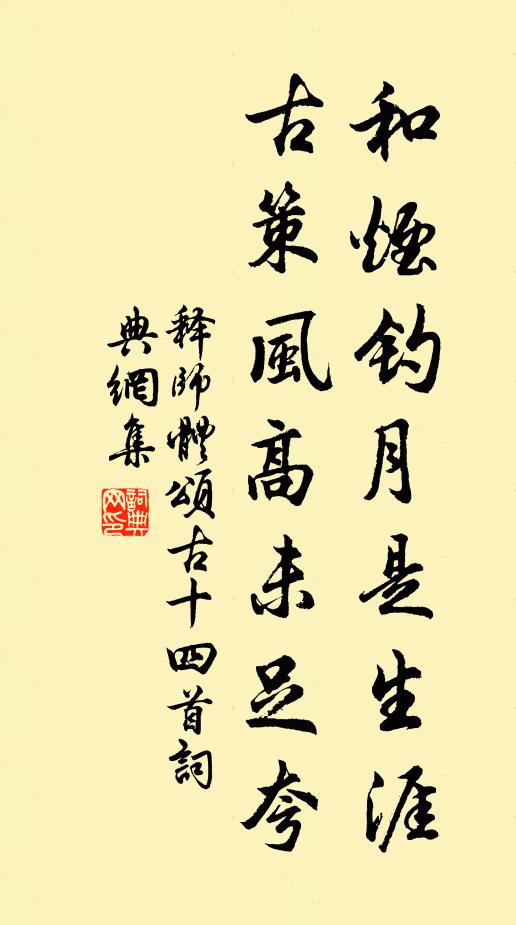 和煙釣月是生涯
古策風高未足夸
释師體頌古十四首詞
典網集
詞典网印